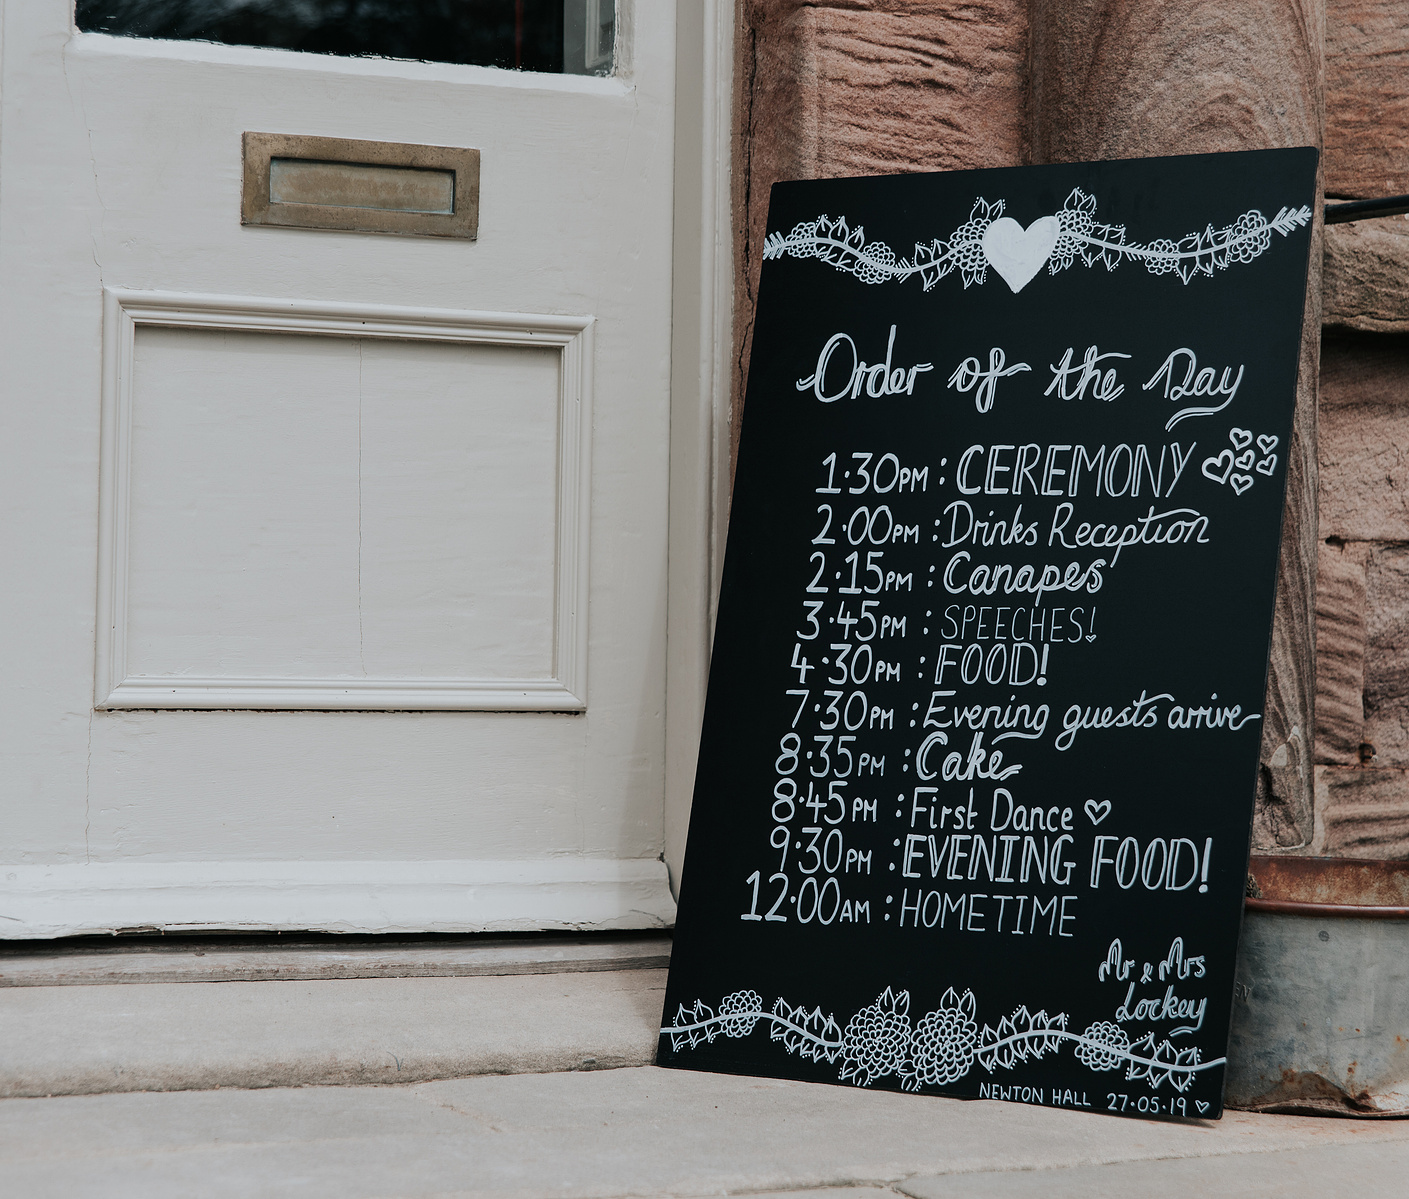 Order of the Day
1·30PM : CEREMONY
2·00PM : Drinks Reception
2·15PM : Canapes
3·45PM : SPEECHES!
4·30PM : FOOD!
7·30PM : Evening guests arrive
8·35PM : Cake
8·45PM : First Dance
9·30PM : EVENING FOOD!
12·00AM : HOMETIME
Mr & Mrs
Lockey
NEWTON HALL 27·05·19